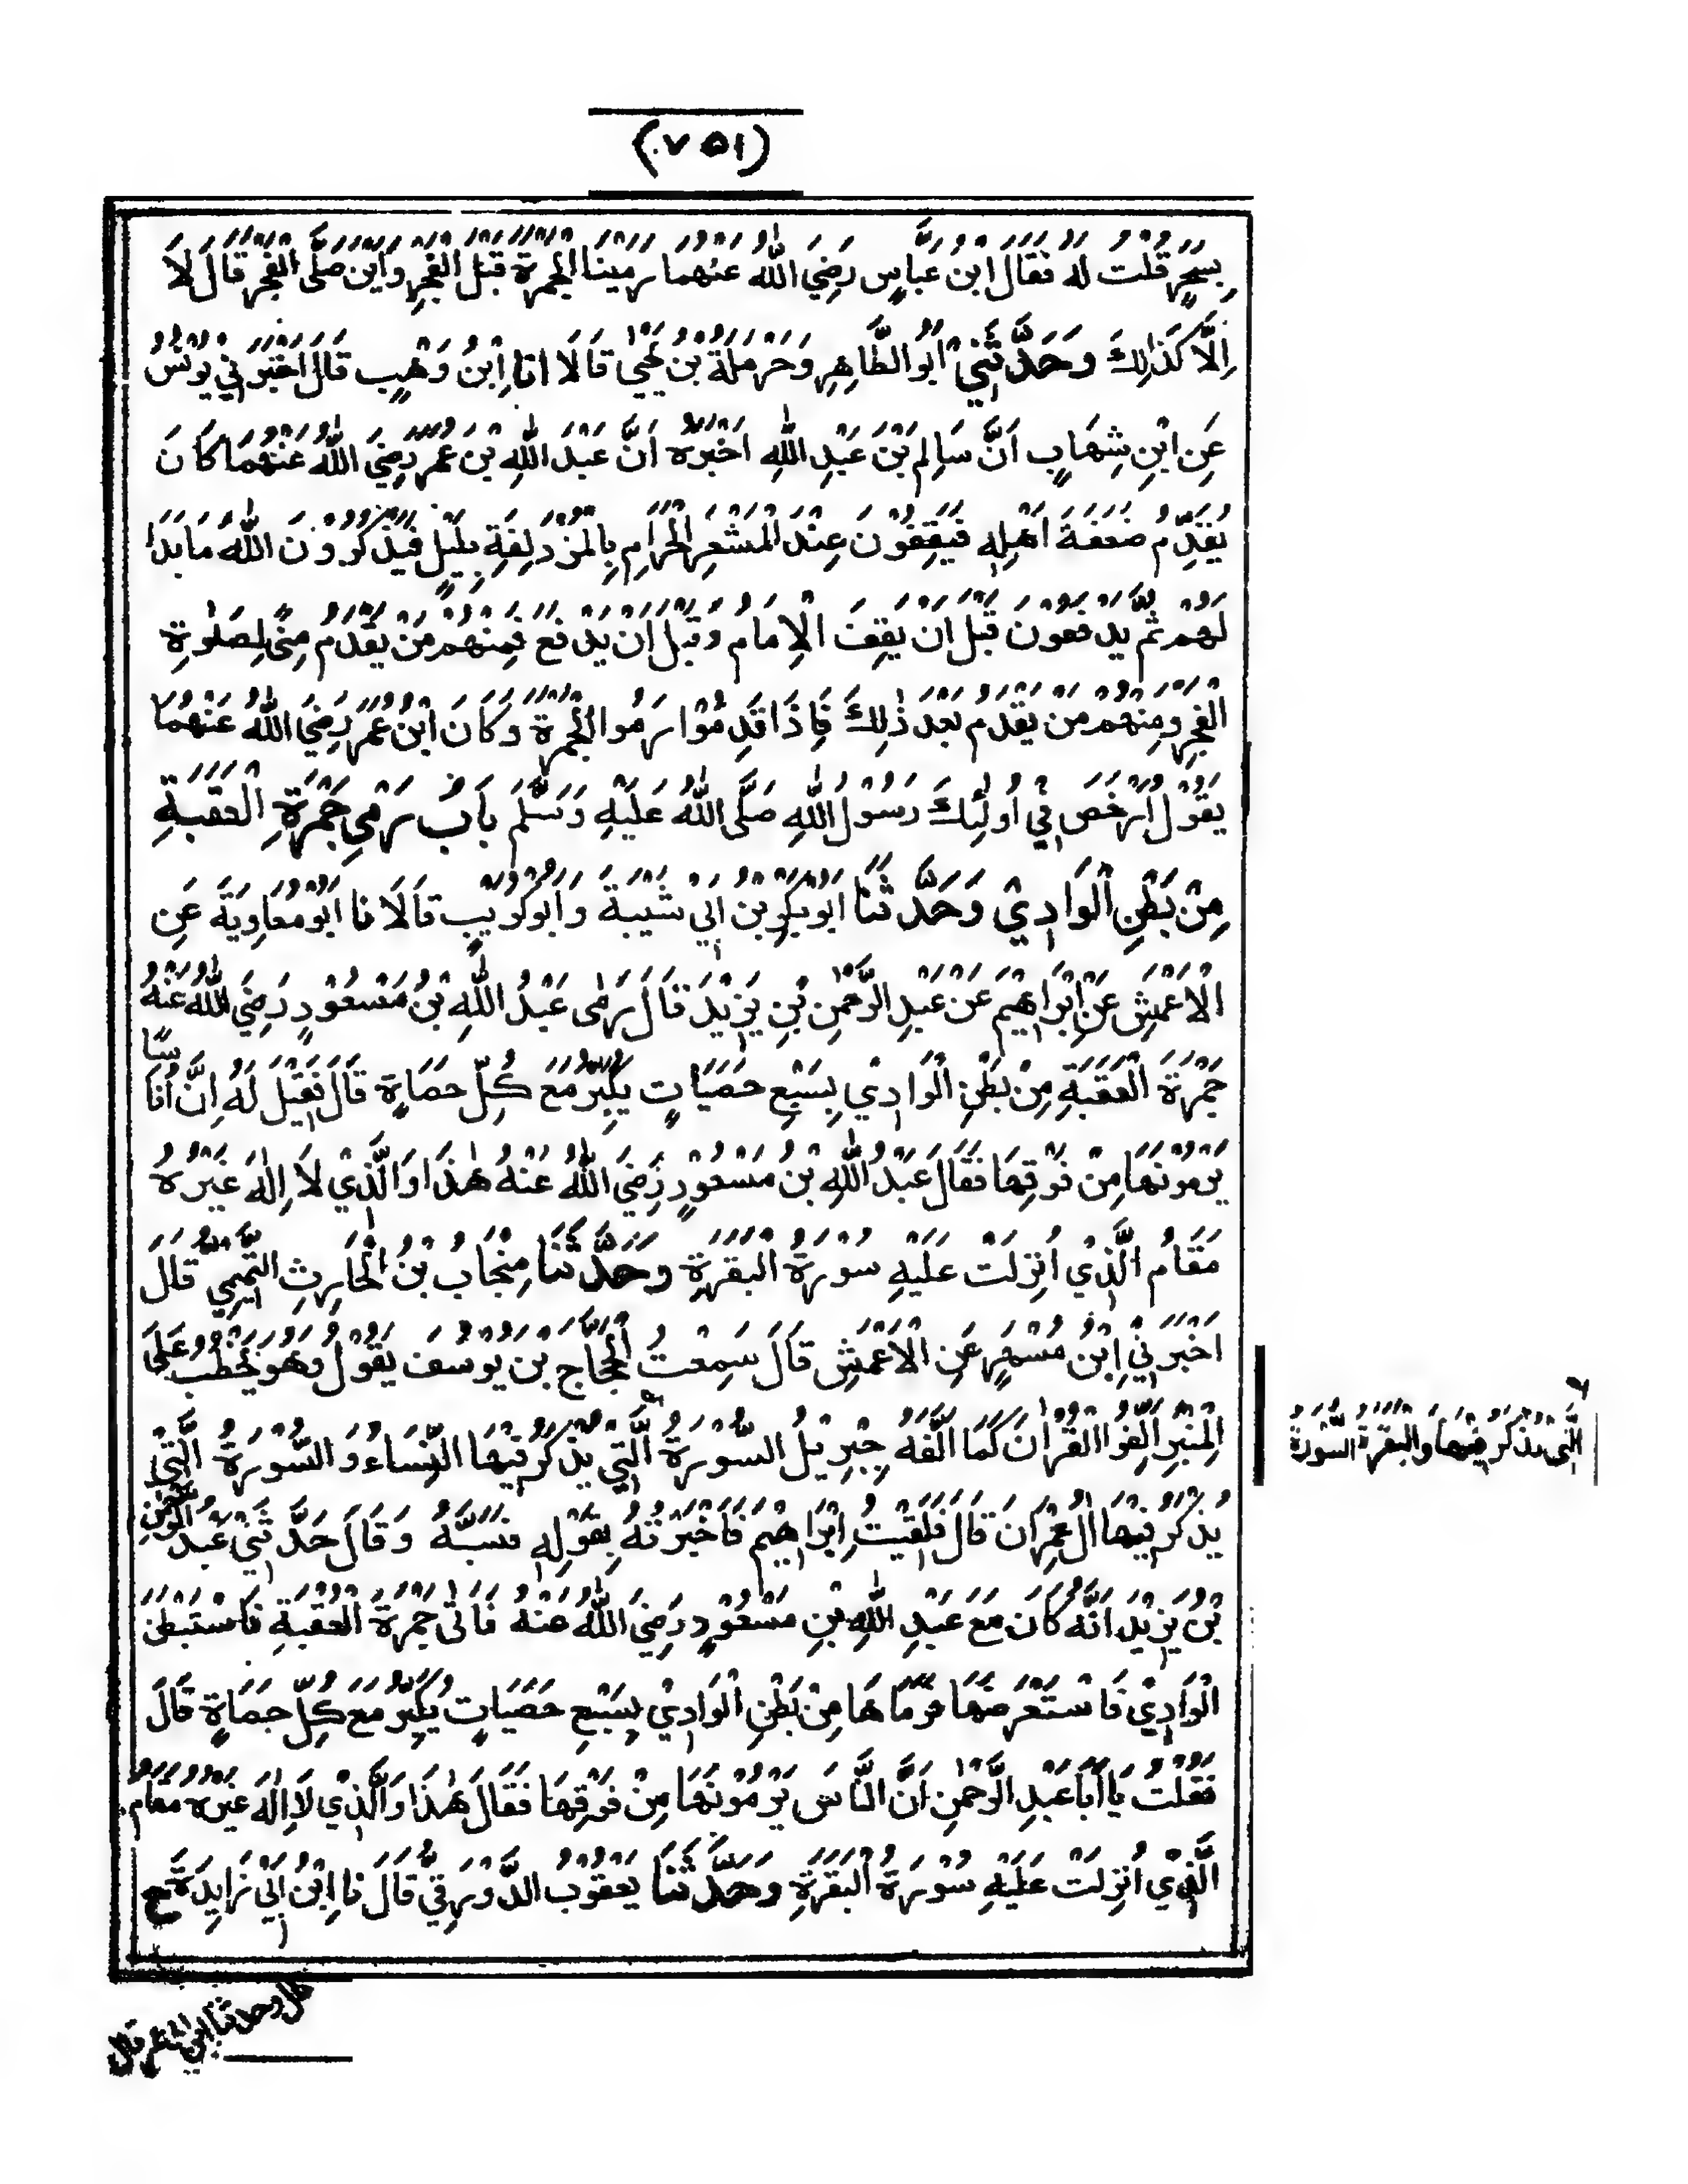 (٧٥١)
بِسَحَرٍ قُلْتُ لَهُ فَقَالَ ابْنُ عَبَّاسٍ رَضِيَ اللّٰهُ عَنْهُمَا رَمَيْنَا الْجَمْرَةَ قَبْلَ الْفَجْرِ وَاَيْنَ صَلَّى الْفَجْرَ قَالَ لَا
اِلَّا كَذٰلِكَ وَحَدَّثَنِيْ اَبُو الطَّاهِرِ وَحَرْمَلَةُ بْنُ يَحْيٰى قَالَا انا اِبْنُ وَهْبٍ قَالَ اَخْبَرَنِيْ يُوْنُسُ
عَنِ ابْنِ شِهَابٍ اَنَّ سَالِمَ بْنَ عَبْدِ اللّٰهِ اَخْبَرَهُ اَنَّ عَبْدَ اللّٰهِ بْنَ عُمَرَ رَضِيَ اللّٰهُ عَنْهُمَا كَانَ
يُقَدِّمُ ضَعَفَةَ اَهْلِهٖ فَيَقِفُوْنَ عِنْدَ الْمَشْعَرِ الْحَرَامِ بِالْمُزْدَلِفَةِ بِلَيْلٍ فَيَذْكُرُوْنَ اللّٰهَ مَا بَدَا
لَهُمْ ثُمَّ يَدْفَعُوْنَ قَبْلَ اَنْ يَقِفَ الْاِمَامُ وَقَبْلَ اَنْ يَدْفَعَ فَمِنْهُمْ مَنْ يَقْدَمُ مِنًى لِصَلٰوةِ
الْفَجْرِ وَمِنْهُمْ مَنْ يَقْدَمُ بَعْدَ ذٰلِكَ فَاِذَا قَدِمُوْا رَمَوُا الْجَمْرَةَ وَكَانَ ابْنُ عُمَرَ رَضِيَ اللّٰهُ عَنْهُمَا
يَقُوْلُ اُرْخِصَ فِيْ اُولٰئِكَ رَسُوْلُ اللّٰهِ صَلَّى اللّٰهُ عَلَيْهِ وَسَلَّمَ بَابُ رَمْيِ جَمْرَةِ الْعَقَبَةِ
مِنْ بَطْنِ الْوَادِيْ وَحَدَّثَنَا اَبُوْ بَكْرِ بْنُ اَبِيْ شَيْبَةَ وَاَبُوْ كُرَيْبٍ قَالَا نا اَبُوْ مُعَاوِيَةَ عَنِ
الْاَعْمَشِ عَنْ اِبْرَاهِيْمَ عَنْ عَبْدِ الرَّحْمٰنِ بْنِ يَزِيْدَ قَالَ رَمٰى عَبْدُ اللّٰهِ بْنُ مَسْعُوْدٍ رَضِيَ اللّٰهُ عَنْهُ
جَمْرَةَ الْعَقَبَةِ مِنْ بَطْنِ الْوَادِيْ بِسَبْعِ حَصَيَاتٍ يُكَبِّرُ مَعَ كُلِّ حَصَاةٍ قَالَ فَقِيْلَ لَهُ اِنَّ اُنَاسًا
يَرْمُوْنَهَا مِنْ فَوْقِهَا فَقَالَ عَبْدُ اللّٰهِ بْنُ مَسْعُوْدٍ رَضِيَ اللّٰهُ عَنْهُ هٰذَا وَالَّذِيْ لَا اِلٰهَ غَيْرُهُ
مَقَامُ الَّذِيْ اُنْزِلَتْ عَلَيْهِ سُوْرَةُ الْبَقَرَةِ وَحَدَّثَنَا مِنْجَابُ بْنُ الْحَارِثِ التَّمِيْمِيُّ قَالَ
اَخْبَرَنِيْ اِبْنُ مُسْهِرٍ عَنِ الْاَعْمَشِ قَالَ سَمِعْتُ الْحَجَّاجَ بْنَ يُوْسُفَ يَقُوْلُ وَهُوَ يَخْطُبُ عَلَى
الْمِنْبَرِ اَلِّفُوا الْقُرْاٰنَ كَمَا اَلَّفَهُ جِبْرِيْلُ السُّوْرَةُ الَّتِيْ يُذْكَرُ فِيْهَا النِّسَاءُ وَالسُّوْرَةُ الَّتِيْ
الَّتِيْ يُذْكَرُ فِيْهَا الْبَقَرَةُ وَالسُّوْرَةُ
يُذْكَرُ فِيْهَا اٰلُ عِمْرَانَ قَالَ فَلَقِيْتُ اِبْرَاهِيْمَ فَاَخْبَرْتُهُ بِقَوْلِهٖ فَسَبَّهُ وَقَالَ حَدَّثَنِيْ عَبْدُ الرَّحْمٰنِ
بْنُ يَزِيْدَ اَنَّهُ كَانَ مَعَ عَبْدِ اللّٰهِ بْنِ مَسْعُوْدٍ رَضِيَ اللّٰهُ عَنْهُ فَاَتٰى جَمْرَةَ الْعَقَبَةِ فَاسْتَبْطَنَ
الْوَادِيْ فَاسْتَعْرَضَهَا فَرَمَاهَا مِنْ بَطْنِ الْوَادِيْ بِسَبْعِ حَصَيَاتٍ يُكَبِّرُ مَعَ كُلِّ حَصَاةٍ قَالَ
فَقُلْتُ يَا اَبَا عَبْدِ الرَّحْمٰنِ اَنَّ النَّاسَ يَرْمُوْنَهَا مِنْ فَوْقِهَا فَقَالَ هٰذَا وَالَّذِيْ لَا اِلٰهَ غَيْرُهُ مَقَامُ
الَّذِيْ اُنْزِلَتْ عَلَيْهِ سُوْرَةُ الْبَقَرَةِ وَحَدَّثَنَا يَعْقُوْبُ الدَّوْرَقِيُّ قَالَ نا اِبْنُ اَبِيْ زَايِدَةَ ح
قال وحدثنا ابن ابي عمر قال